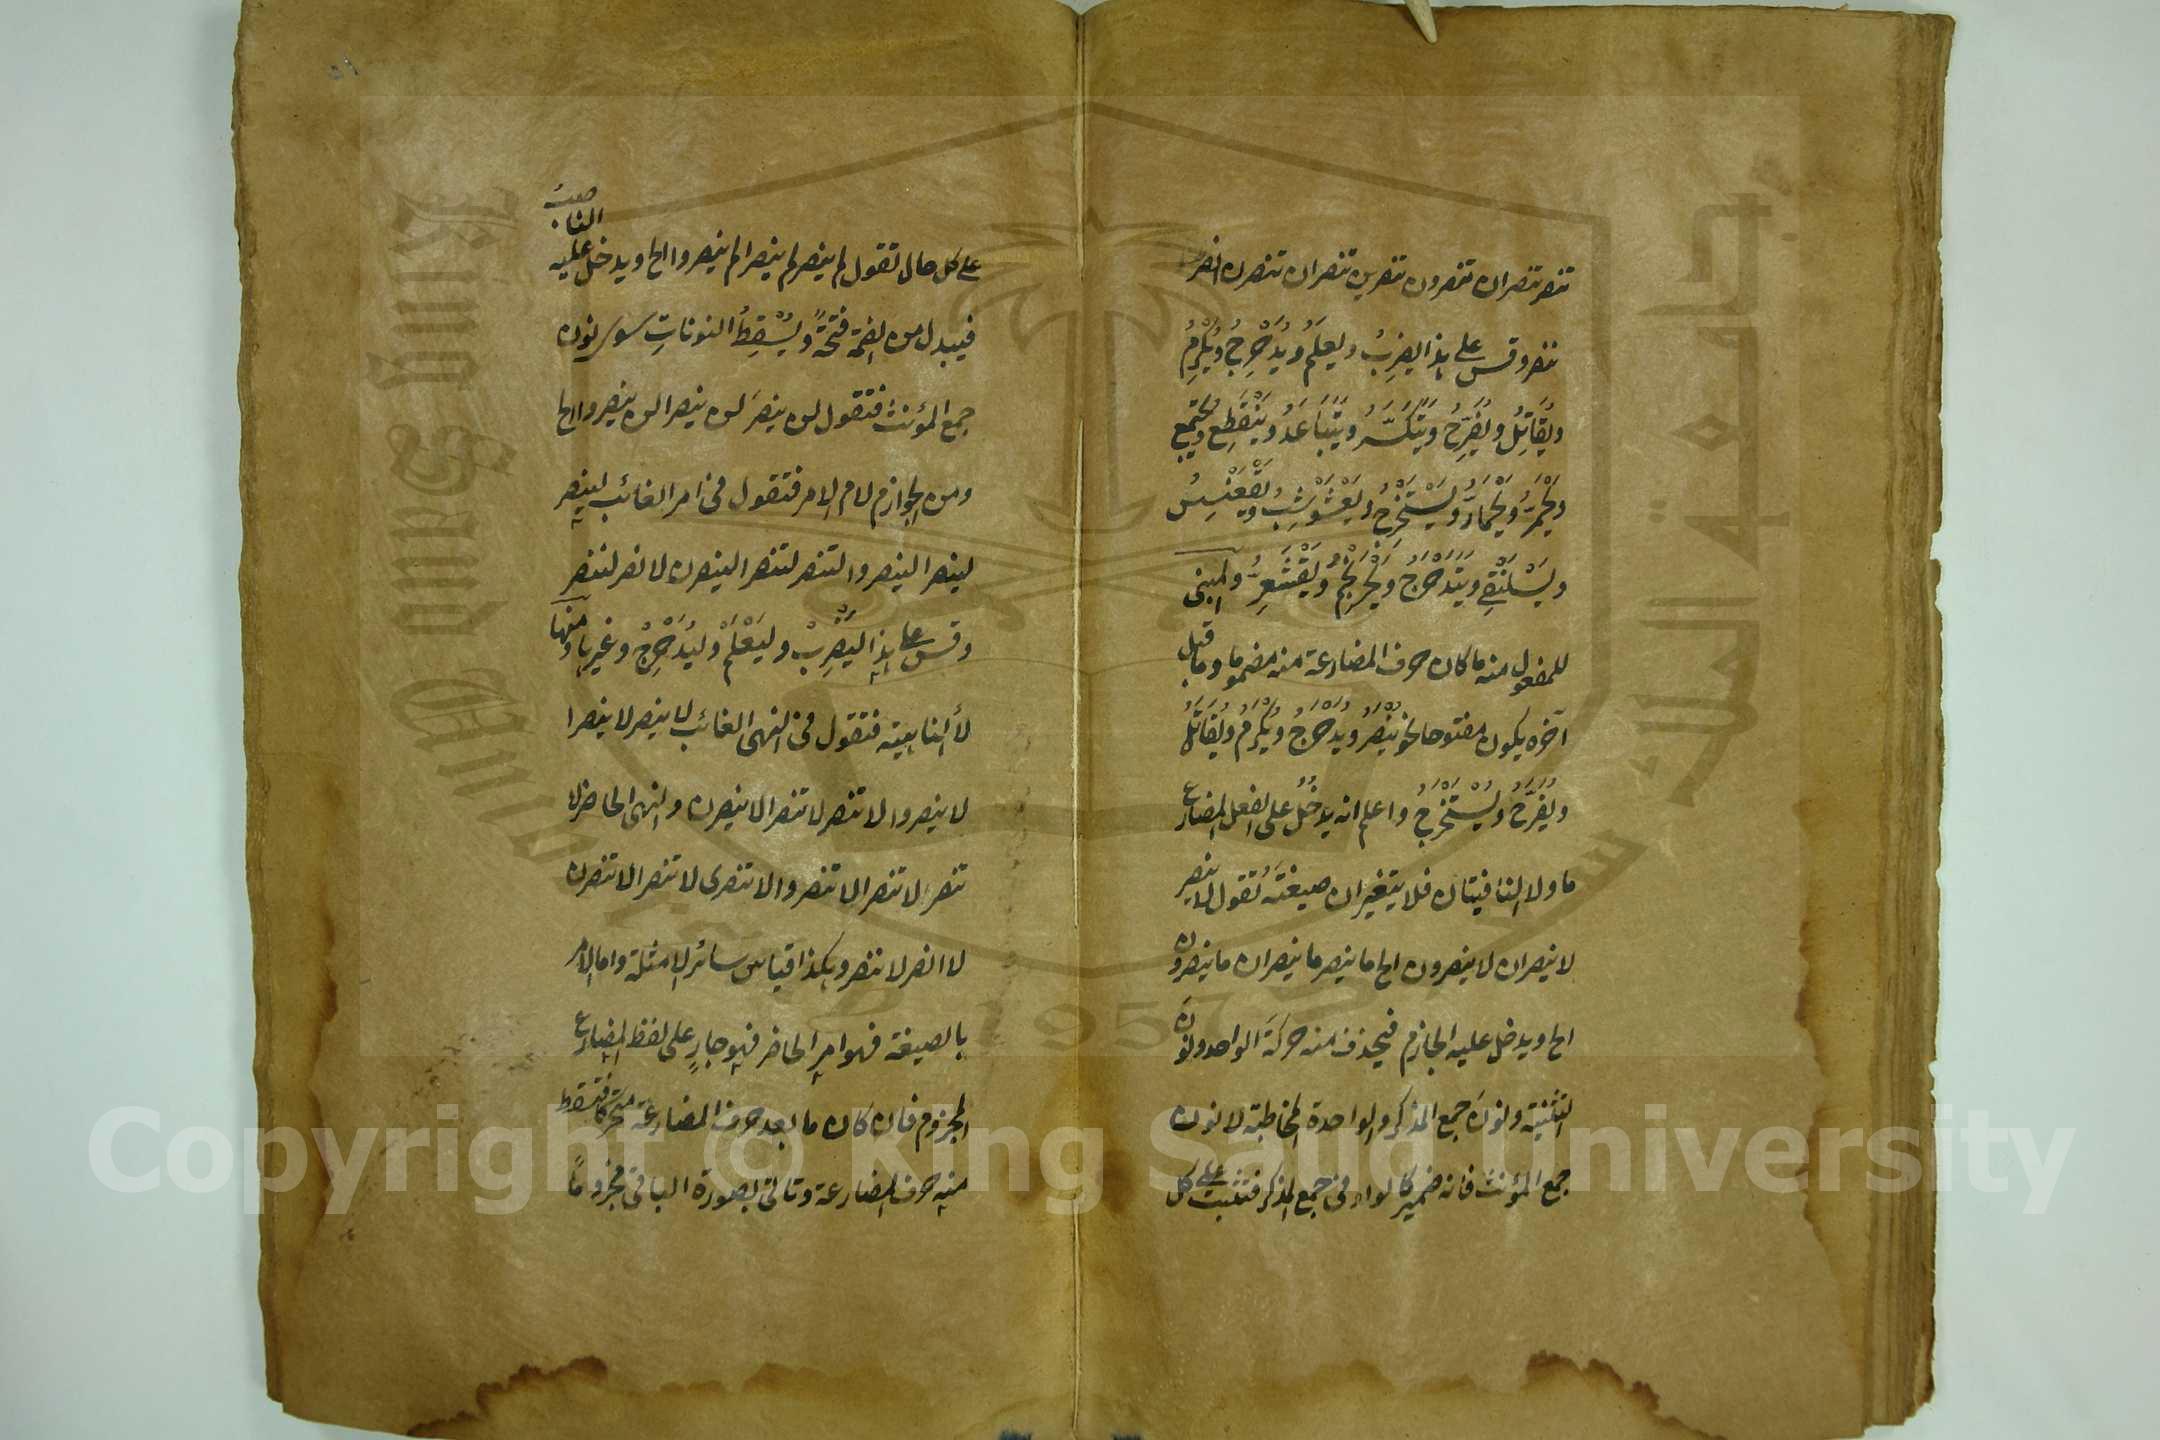 تنصر تنصران تنصرون تنصرين تنصران تنصرن انصر
ننصر وقس على هذا يضرِبُ ويعلَمُ ويُدَحْرِجُ ويُكْرِمُ
ويُقَاتِلُ ويُفَرِّحُ ويَتَكَسَّرُ ويَتَبَاعَدُ ويَنْقَطِعُ ويَجْتَمِع
ويَحْمَرُّ ويَحْمَارُّ ويَسْتَخْرِجُ ويَعْشَوْشِبُ ويَقْعَنْسِسُ
ويَسْلَنْقِي ويَتَدَحْرَجُ ويَحْرَنْجِمُ ويَقْشَعِرُّ والمبنى
للمفعول منه ما كان حرف المضارعة منه مضموما وما قبل
آخره يكون مفتوحا نحو يُنْصَرُ ويُدَحْرَجُ ويُكْرَمُ ويُقَاتَلُ
ويُفَرَّحُ ويُسْتَخْرَجُ واعلم انه يدخُلُ على الفعل المضارع
ما ولا النافيتان فلا يتغيران صيغتَه تقول لا ينصر
لا ينصران لا ينصرون الخ ما ينصر ما ينصران ما ينصرون
الخ ويدخل عليه الجازم فيحذف منه حركة الواحد ونونَ
التثنية ونونَ جمع المذكر والواحدة المخاطبة لا نون
جمع المؤنث فانه ضمير كالواو في جمع المذكر فتثبت على كل
على كل حال تقول لم ينصر لم ينصرا لم ينصروا الخ ويدخل عليه الناصبُ
فيبدل من الضمة فتحةً ويُسْقِطُ النوناتِ سوى نون
جمع المؤنث فتقول لن ينصرَ لن ينصرا لن ينصروا الخ
ومن الجوازم لام الامر فتقول في امر الغائب لينصر
لينصرا لينصروا لتنصر لتنصرا لينصرن لانصر لننصر
وقس على هذا ليَضْرِبْ وليَعْلَمْ وليُدَحْرِجْ وغيرها ومنها
لا الناهية فتقول في النهى الغائب لا ينصر لا ينصرا
لا ينصروا لا تنصر لا تنصرا لا ينصرن والنهى الحاضر لا
تنصر لا تنصرا لا تنصروا لا تنصرى لا تنصرا لا تنصرن
لا انصر لا ننصر وهكذا قياس سائر الامثلة واما الامر
بالصيغة فهو امر الحاضر فهو جارٍ على لفظ المضارع
المجزوم فان كان ما بعد حرف المضارعة متحركا فتسقط
منه حرف المضارعة وتأتى بصورة الباقى مجزوماً
Copyright © King Saud University
1957